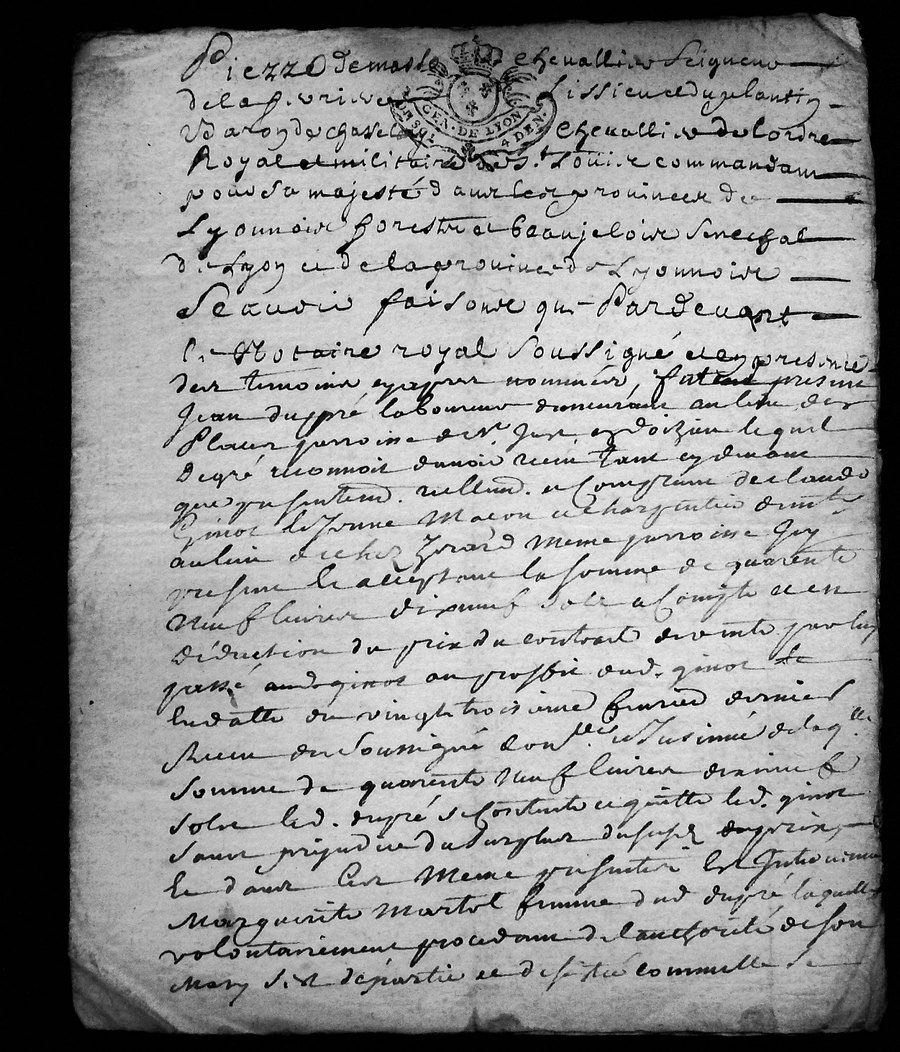 Pierre demasso chevallier Seigneur
dela ferriere Lissieu et du plantin
Baron de chasselay chevallier de lordre
Royal et militaire de St Louis commandant
pour Sa majesté dans les provinces de
Lyonnois forest et beaujolois Senechal
de Lyon et de la province de Lyonnois
GEN. DE LYON
4 DEN.
Scavoir faisons que Pardevant
le Notaire royal Soussigné et en presence
des temoins cy apres nommés, fut present
Jean dupré laboureur demeurant au lieu des
Places parroisse de St Just en doizieu lequel
de gré reconnoit avoir receu tant cy devant
que presentemt. reellemt. et comptant de claude
Ginot le Jeune Macon et charpentier demt.
au lieu de chez Gerard meme parroisse Icy
present et acceptant la somme de quarente
Neuf livres dixneuf sols a compte et en
deduction du prix du contrat de vente par luy
passé au profit dud. ginot
en datte du vingt troisieme fevrier dernier
Receu du Soussigné et Insinué de laqlle.
Somme de quarente Neuf livres dixneuf
sols led. dupré se contente et quitte led. ginot
sans prejudice du Surplus du prix,
Et dans ces meme presentes est Intervenue
Marguerite Martel femme dud dupré laquelle
volontairement procedant de lauthorité de son
Mary s'est departie et desistée comme elle se